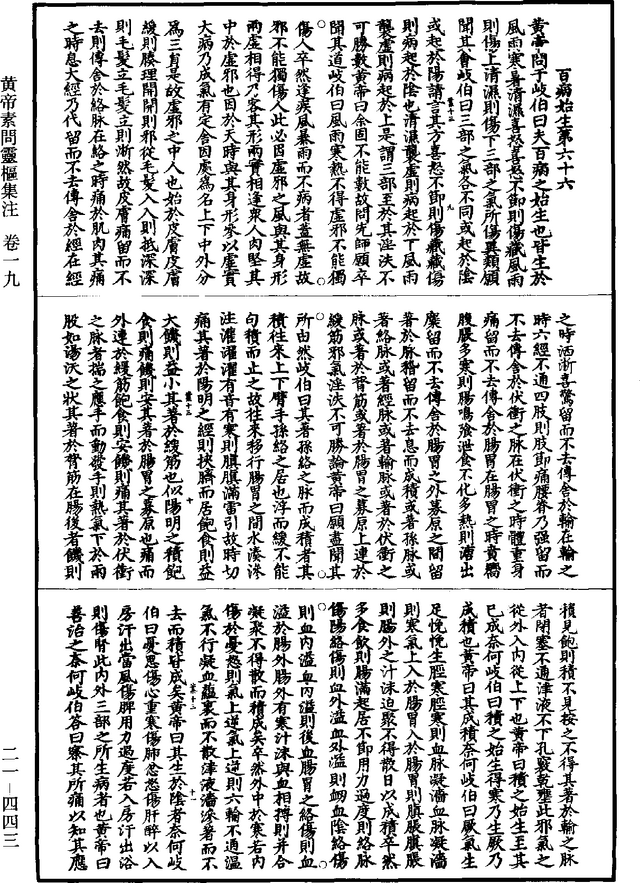 百病始生第六十六
黃帝問于岐伯曰夫百病之始生也皆生於
風雨寒暑清濕喜怒喜怒不節則傷臟風雨
則傷上清濕則傷下三部之氣所傷異類願
聞其會岐伯曰三部之氣各不同或起於陰
或起於陽請言其方喜怒不節則傷臟臟傷
則病起於陰也清濕襲虛則病起於下風雨
襲虛則病起於上是謂三部至於其淫泆不
可勝數黃帝曰余固不能數故問先師願卒
聞其道岐伯曰風雨寒熱不得虛邪不能獨
傷人卒然逢疾風暴雨而不病者蓋無虛故
邪不能獨傷人此必因虛邪之風與其身形
兩虛相得乃客其形兩實相逢衆人肉堅其
中於虛邪也因於天時與其身形參以虛實
大病乃成氣有定舍因處爲名上下中外分
爲三員是故虛邪之中人也始於皮膚皮膚
緩則腠理開開則邪從毛髮入入則抵深深
則毛髮立毛髮立則淅然故皮膚痛留而不
去則傳舍於絡脉在絡之時痛於肌肉其痛
之時息大經乃代留而不去傳舍於經在經
之時洒淅喜驚留而不去傳舍於輸在輸之
時六經不通四肢則肢節痛腰脊乃强留而
不去傳舍於伏衝之脉在伏衝之時體重身
痛留而不去傳舍於腸胃在腸胃之時賁嚮
腹脹多寒則腸鳴飱泄食不化多熱則溏出
糜留而不去傳舍於腸胃之外募原之間留
著於脉稽留而不去息而成積或著孫脉或
著絡脉或著經脉或著輸脉或著於伏衝之
脉或著於膂筋或著於腸胃之募原上連於
緩筋邪氣淫泆不可勝論黃帝曰願盡聞其
所由然岐伯曰其著孫絡之脉而成積者其
積往來上下臂手孫絡之居也浮而緩不能
句積而止之故往來移行腸胃之間水湊滲
注灌濯濯有音有寒則䐜䐜滿雷引故時切
痛其著於陽明之經則挾臍而居飽食則益
大饑則益小其著於緩筋也似陽明之積飽
食則痛饑則安其著於腸胃之募原也痛而
外連於緩筋飽食則安饑則痛其著於伏衝
之脉者揣之應手而動發手則熱氣下於兩
股如湯沃之狀其著於膂筋在腸後者饑則
積見飽則積不見按之不得其著於輸之脉
者閉塞不通津液不下孔竅乾壅此邪氣之
從外入內從上下也黃帝曰積之始生至其
已成奈何岐伯曰積之始生得寒乃生厥乃
成積也黃帝曰其成積奈何岐伯曰厥氣生
足悗悗生脛寒脛寒則血脉凝濇血脉凝濇
則寒氣上入於腸胃入於腸胃則䐜脹䐜脹
則腸外之汁沫迫聚不得散日以成積卒然
多食飲則腸滿起居不節用力過度則絡脉
傷陽絡傷則血外溢血外溢則衄血陰絡傷
則血內溢血內溢則後血腸胃之絡傷則血
溢於腸外腸外有寒汁沫與血相摶則并合
凝聚不得散而積成矣卒然外中於寒若內
傷於憂怒則氣上逆氣上逆則六輸不通溫
氣不行凝血蘊裏而不散津液濇滲著而不
去而積皆成矣黃帝曰其生於陰者奈何岐
伯曰憂思傷心重寒傷肺忿怒傷肝醉以入
房汗出當風傷脾用力過度若入房汗出浴
則傷腎此內外三部之所生病者也黃帝曰
善治之奈何岐伯答曰察其所痛以知其應
黃帝素問靈樞集注 卷一九
二一－四四三